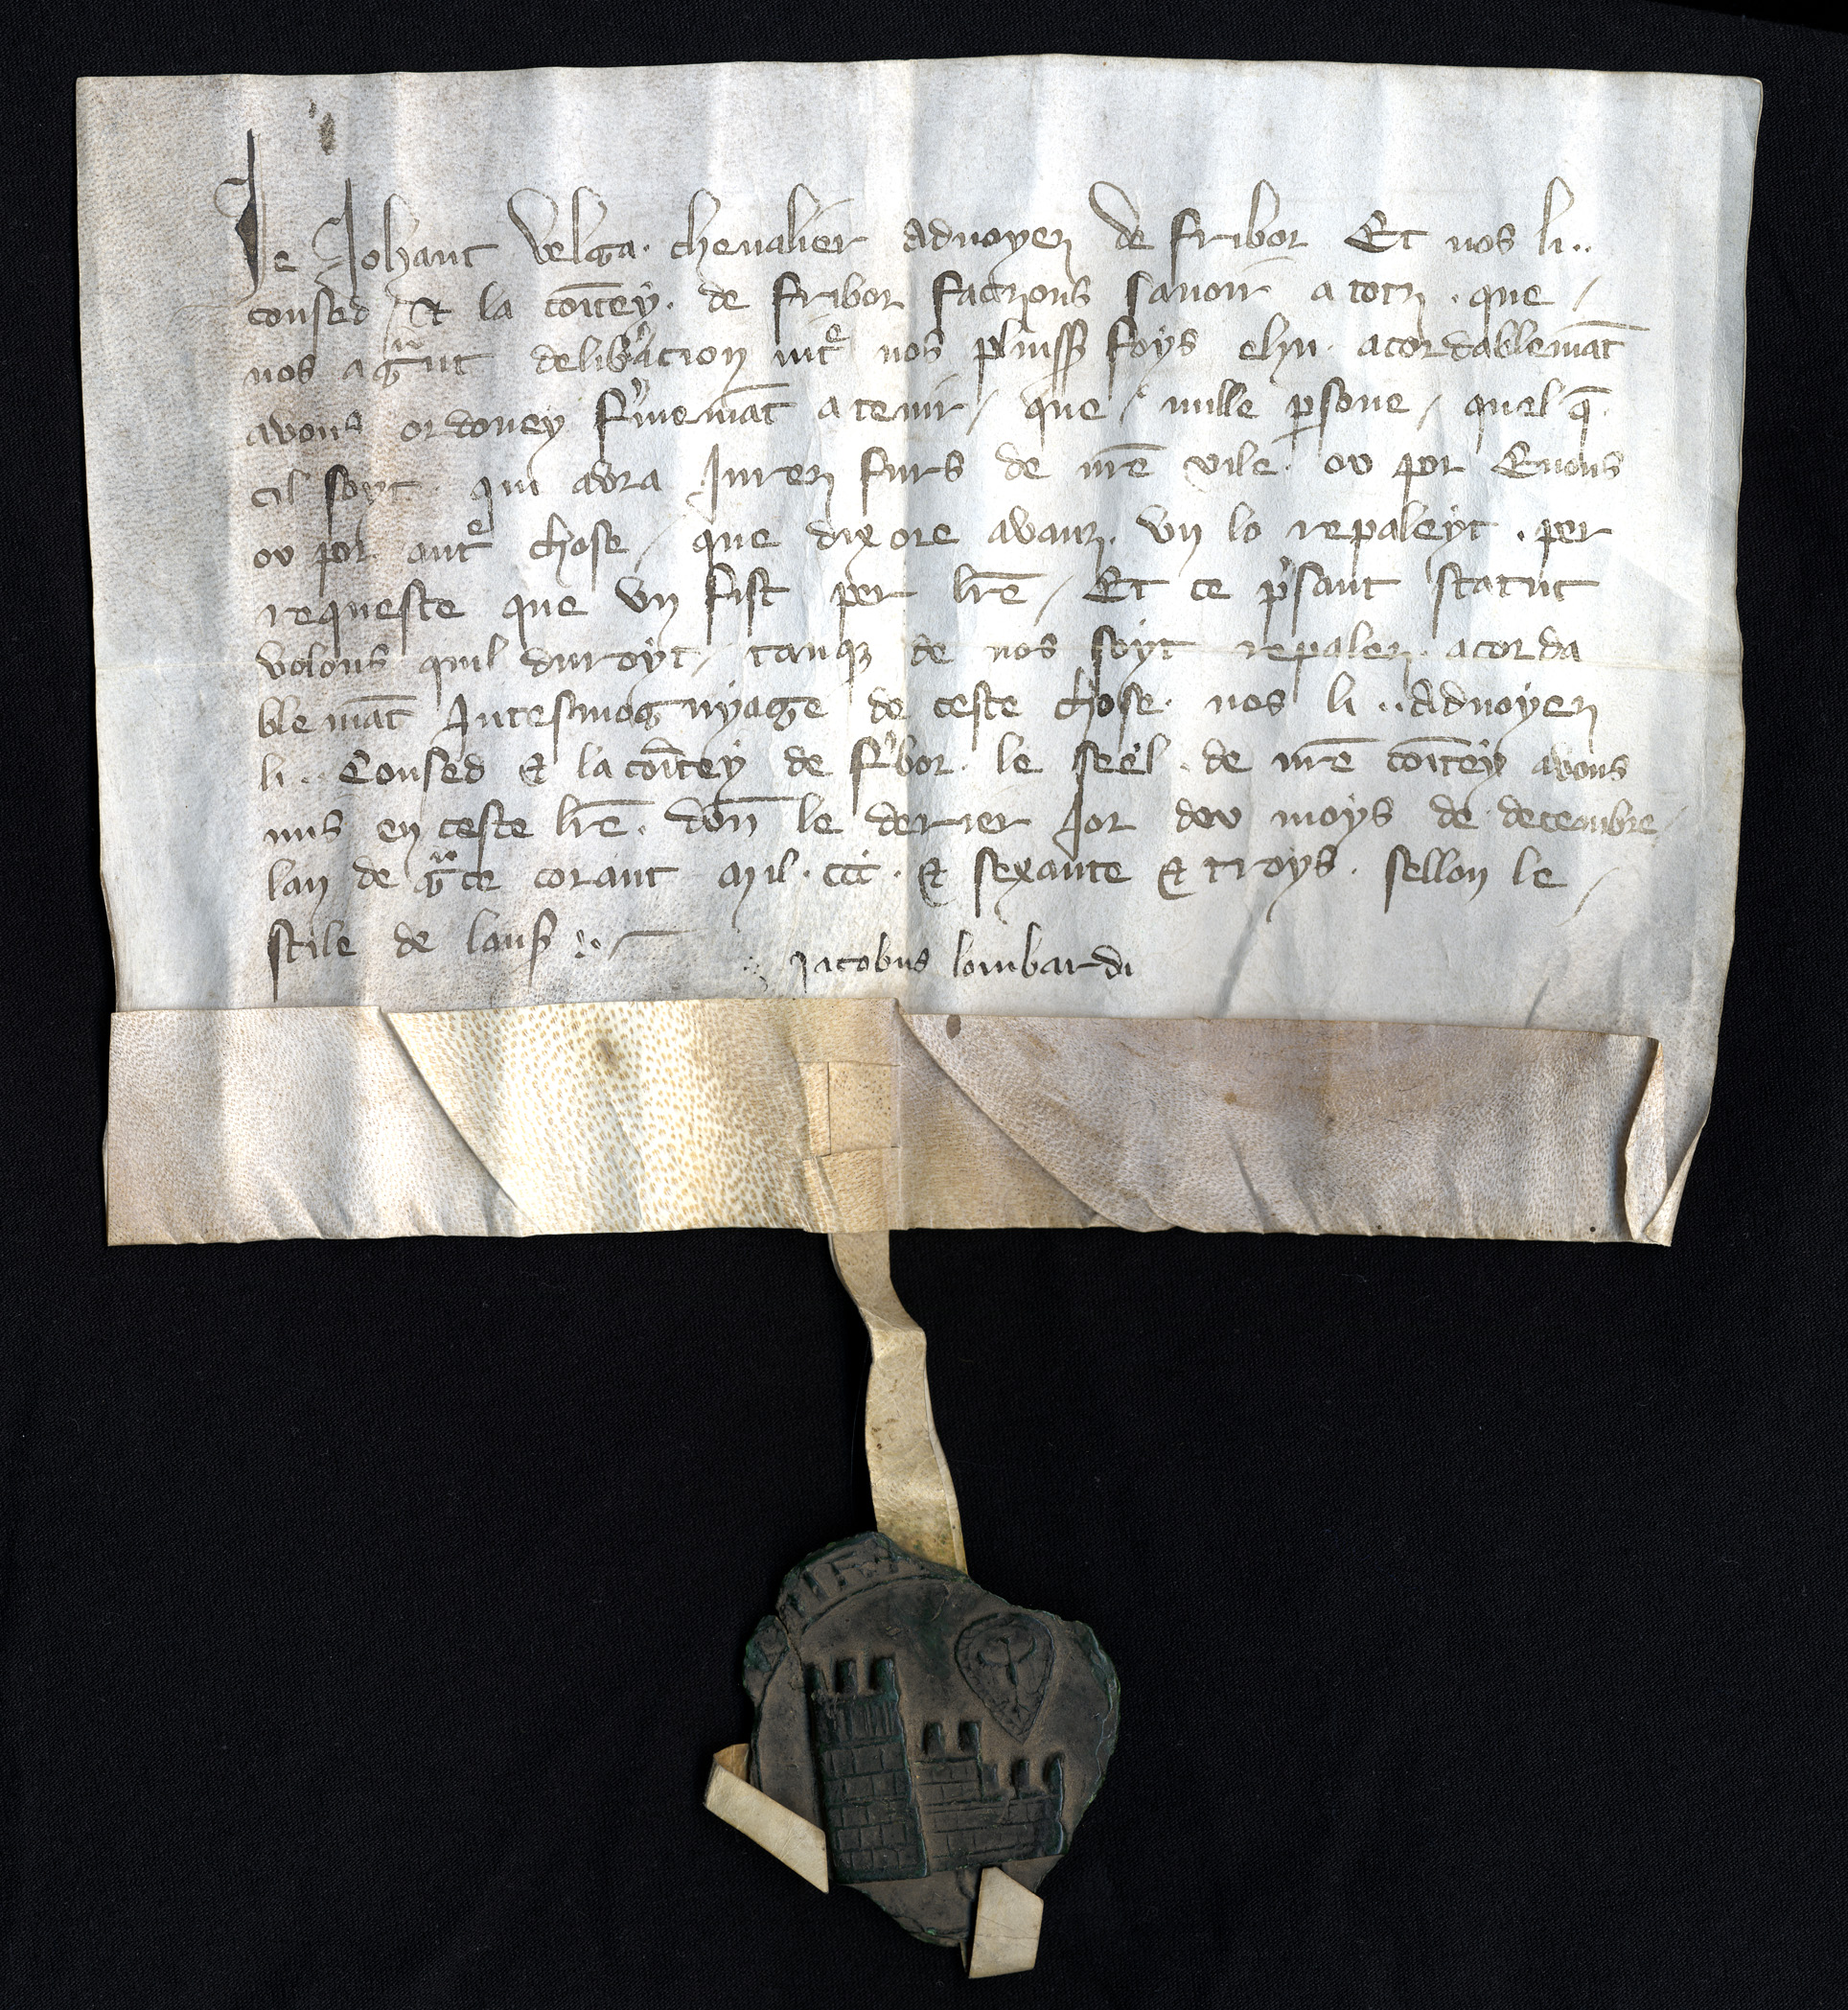 Je Johant Velga . chevalier Advoyer de Fribor Et nos li ..
consed / et la coītey . de Fribor facons savoir a toz . que /
nos a grant deliberacion intre nos plusß foys ehu . acordablemāt
avons ordoney fermemāt a tenir / que / nulle persone / quel q̄
cil soyt . qui avra Jurez fuers de nr̄e vile . ov por Evons
ov por autre chose / que dix ore avanz . vn lo repaleyt . per
requeste que vn fist per lr̄e / Et ce presant statut
volons quil duroyt / tanque de nos soyt repalez . acorda
blemāt Jntesmognyage de ceste chose . nos li .. Advoyer
li .. Consed et la coītey de Fribor . le seel . de nr̄e coītey avons
mis en ceste lr̄e . don̄ le derrier Jor dou moys de decembre
lan de grace corant mil . ccc . et sexante et troys . sellon le /
stile de laus̄ :. /
Jacobus lombardi